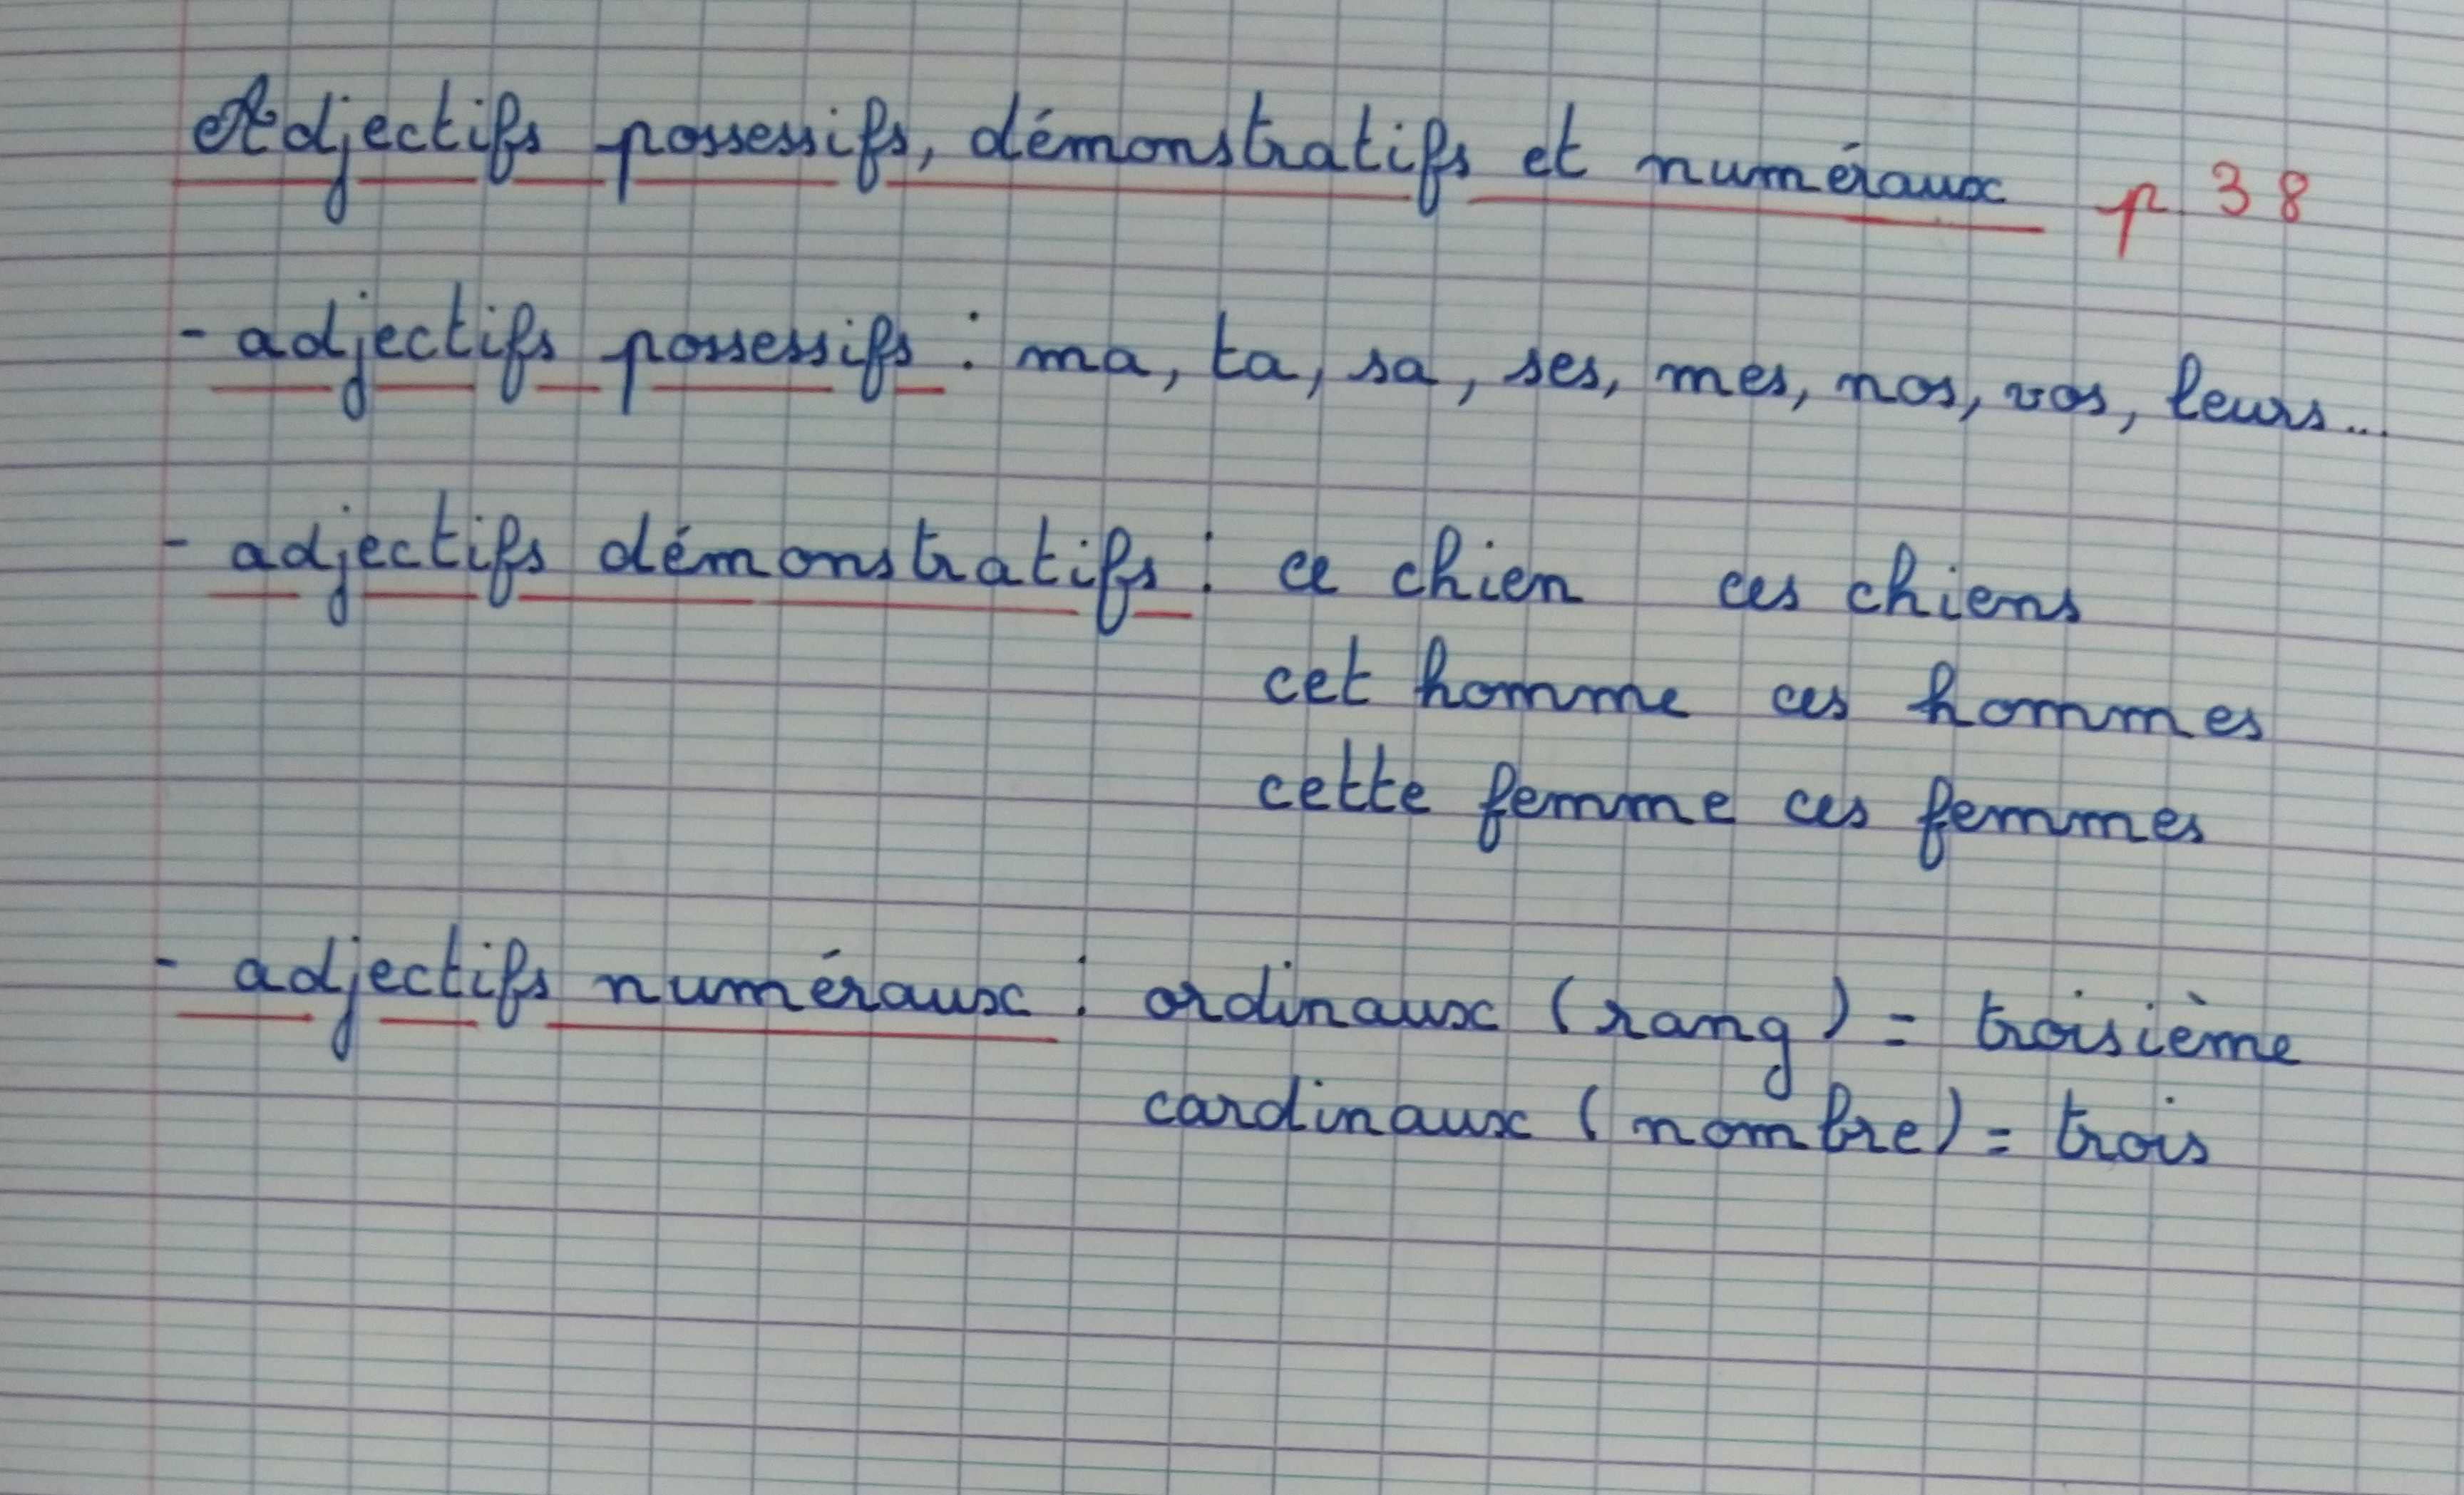 Adjectifs possessifs, démonstratifs et numéraux p 38
- adjectifs possessifs : ma, ta, sa, ses, mes, nos, vos, leurs...
- adjectifs démonstratifs : ce chien ces chiens
cet homme ces hommes
cette femme ces femmes
- adjectifs numéraux : ordinaux (rang) = troisième
cardinaux (nombre) = trois